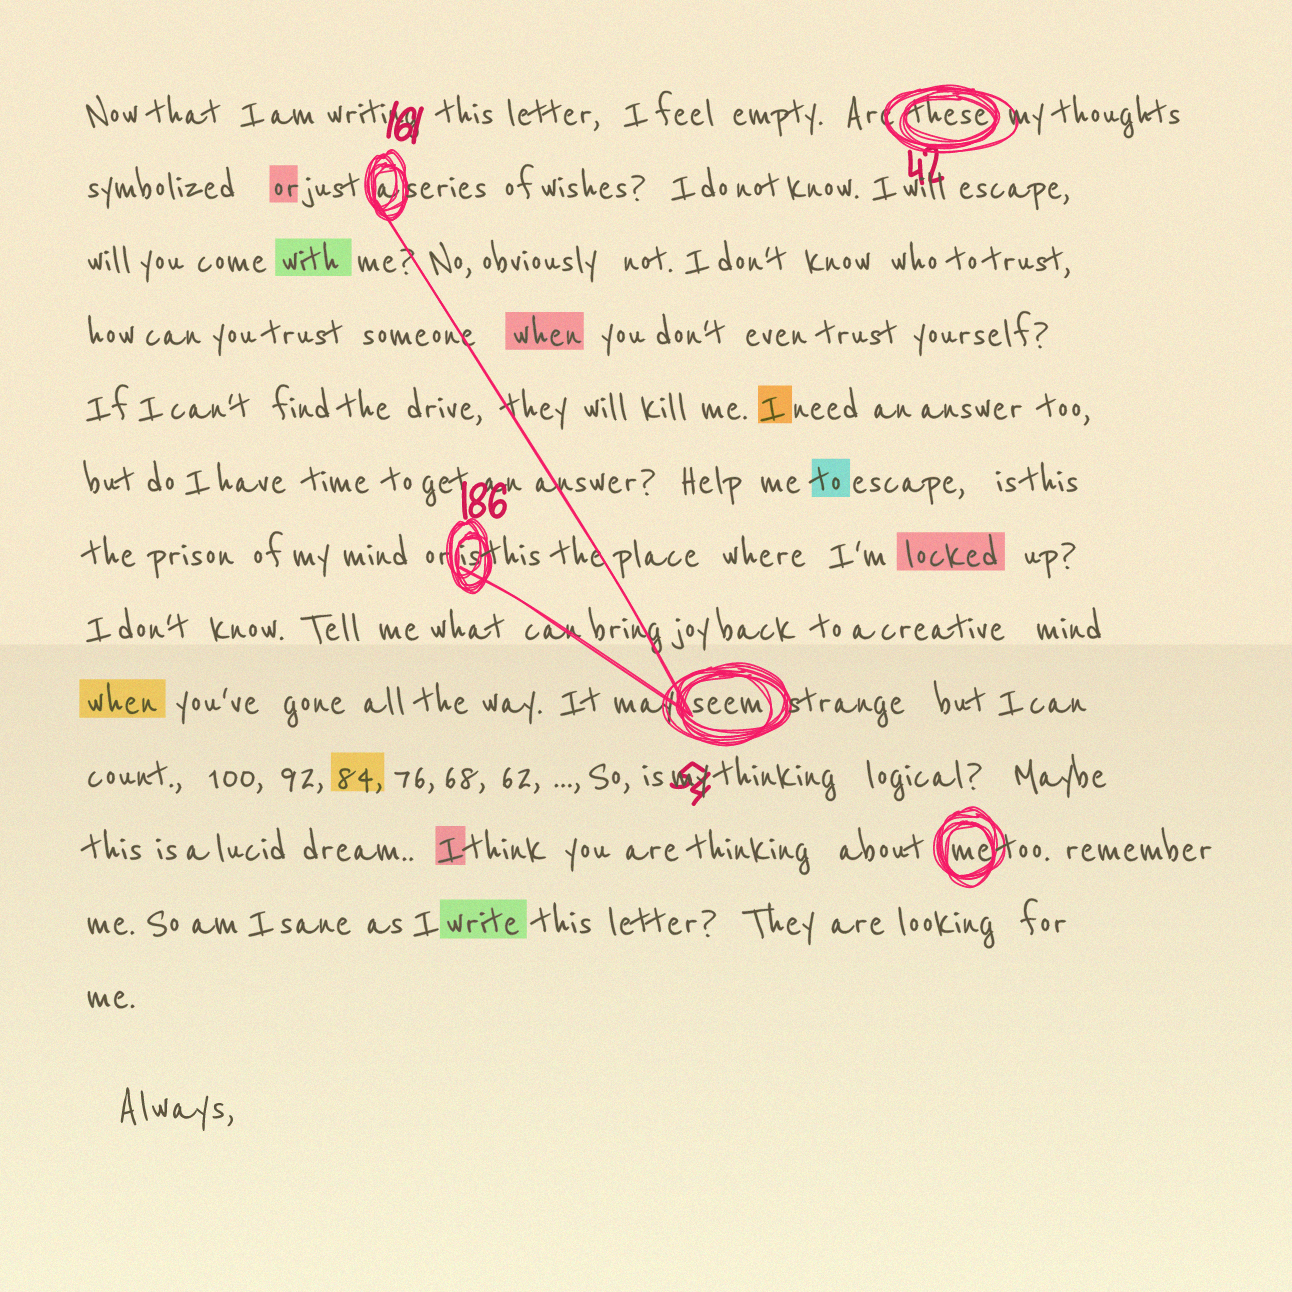 161
Now that I am writing this letter, I feel empty. Are these my thoughts
42
symbolized or just a series of wishes? I do not know. I will escape,
will you come with me? No, obviously not. I don't know who to trust,
how can you trust someone when you don't even trust yourself?
If I can't find the drive, they will kill me. I need an answer too,
but do I have time to get an answer? Help me to escape, is this
186
the prison of my mind or is this the place where I'm locked up?
I don't know. Tell me what can bring joy back to a creative mind
when you've gone all the way. It may seem strange but I can
count., 100, 92, 84, 76, 68, 62, ..., So, is my thinking logical? Maybe
this is a lucid dream.. I think you are thinking about me too. remember
me. So am I sane as I write this letter? They are looking for
me.
Always,